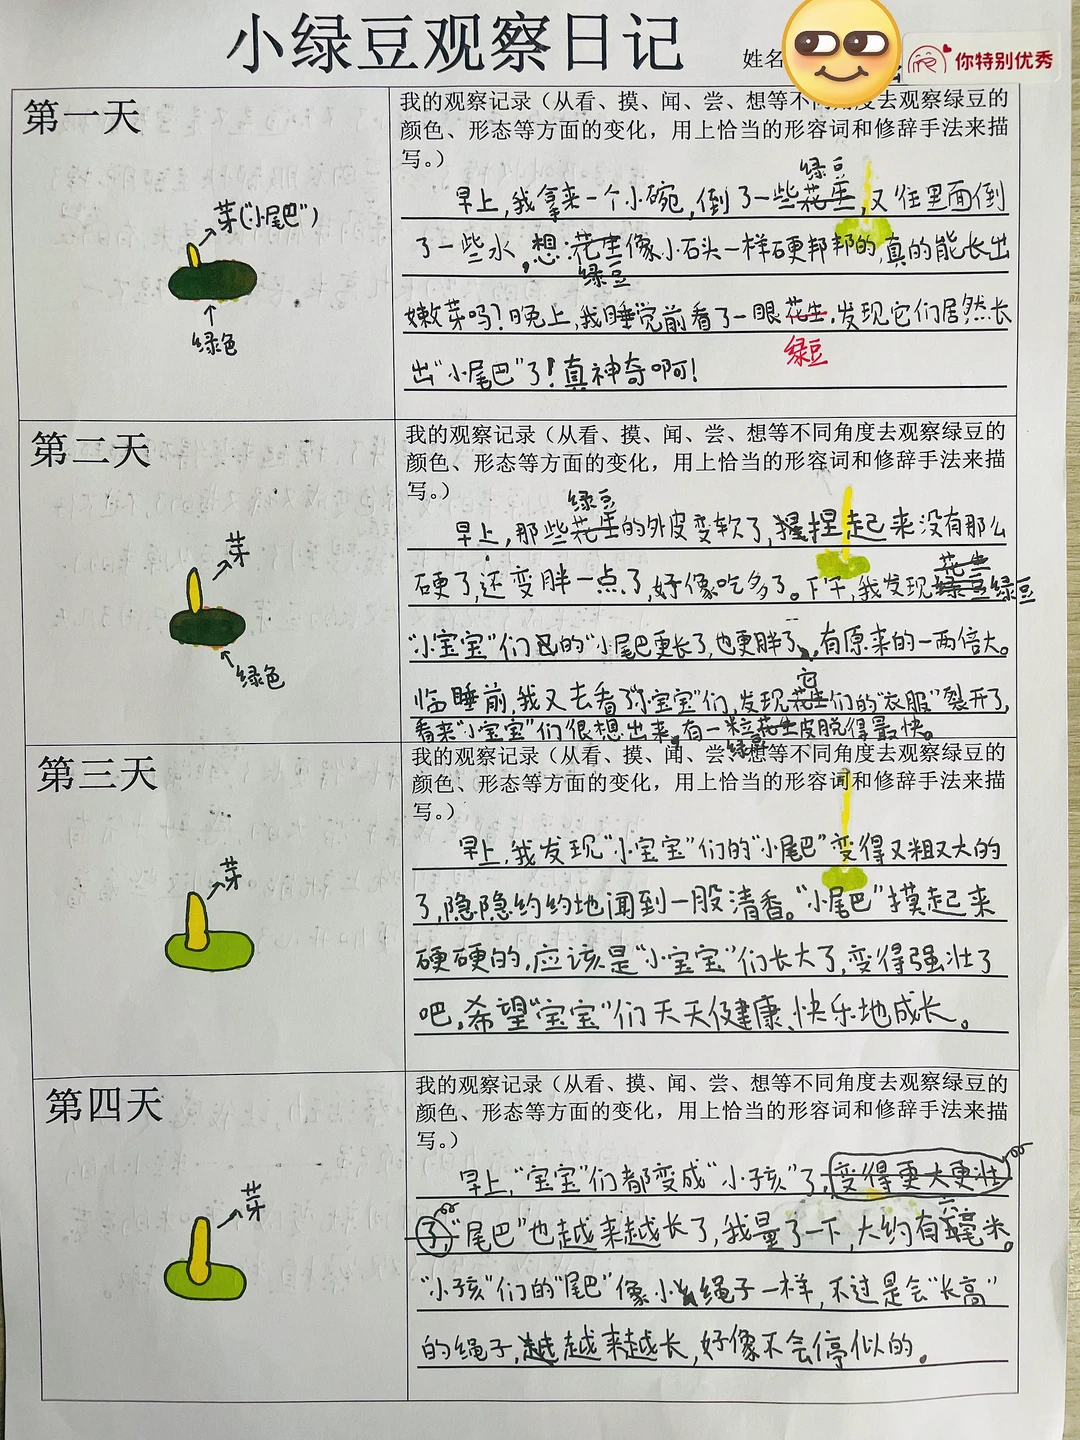 小绿豆观察日记
姓名
你特别优秀
第一天
芽("小尾巴")
绿色
我的观察记录（从看、摸、闻、尝、想等不同角度去观察绿豆的
颜色、形态等方面的变化，用上恰当的形容词和修辞手法来描
写。）
绿豆
早上,我拿来一个小碗,倒了一些花生,又往里面倒
了一些水,想:花生像小石头一样硬邦邦的,真的能长出
绿豆
嫩芽吗?晚上,我睡觉前看了一眼花生,发现它们居然长
绿豆
出"小尾巴"了!真神奇啊!
第二天
芽
绿色
我的观察记录（从看、摸、闻、尝、想等不同角度去观察绿豆的
颜色、形态等方面的变化，用上恰当的形容词和修辞手法来描
写。）
绿豆
早上,那些花生的外皮变软了,捏起来没有那么
花生
硬了,还变胖一点了,好像吃多了。下午,我发现绿豆绿豆
"小宝宝"们的"小尾巴更长了,也更胖了,有原来的一两倍大。
它
临睡前,我又去看了"小宝宝"们,发现花生们的"衣服"裂开了,
看来"小宝宝"们很想出来,有一粒花生皮脱得最快。
绿豆
第三天
芽
我的观察记录（从看、摸、闻、尝、想等不同角度去观察绿豆的
颜色、形态等方面的变化，用上恰当的形容词和修辞手法来描
写。）
早上,我发现"小宝宝"们的"小尾巴"变得又粗又大的
了,隐隐约约地闻到一股清香。"小尾巴"摸起来
硬硬的,应该是"小宝宝"们长大了,变得强壮了
吧,希望"宝宝"们天天健康、快乐地成长。
第四天
芽
我的观察记录（从看、摸、闻、尝、想等不同角度去观察绿豆的
颜色、形态等方面的变化，用上恰当的形容词和修辞手法来描
写。）
早上,"宝宝"们都变成"小孩"了,变得更大更壮
了,"尾巴"也越来越长了,我量了一下,大约有毫米。
"小孩"们的"尾巴"像小绳子一样,不过是会"长高"
的绳子,越越来越长,好像不会停似的。